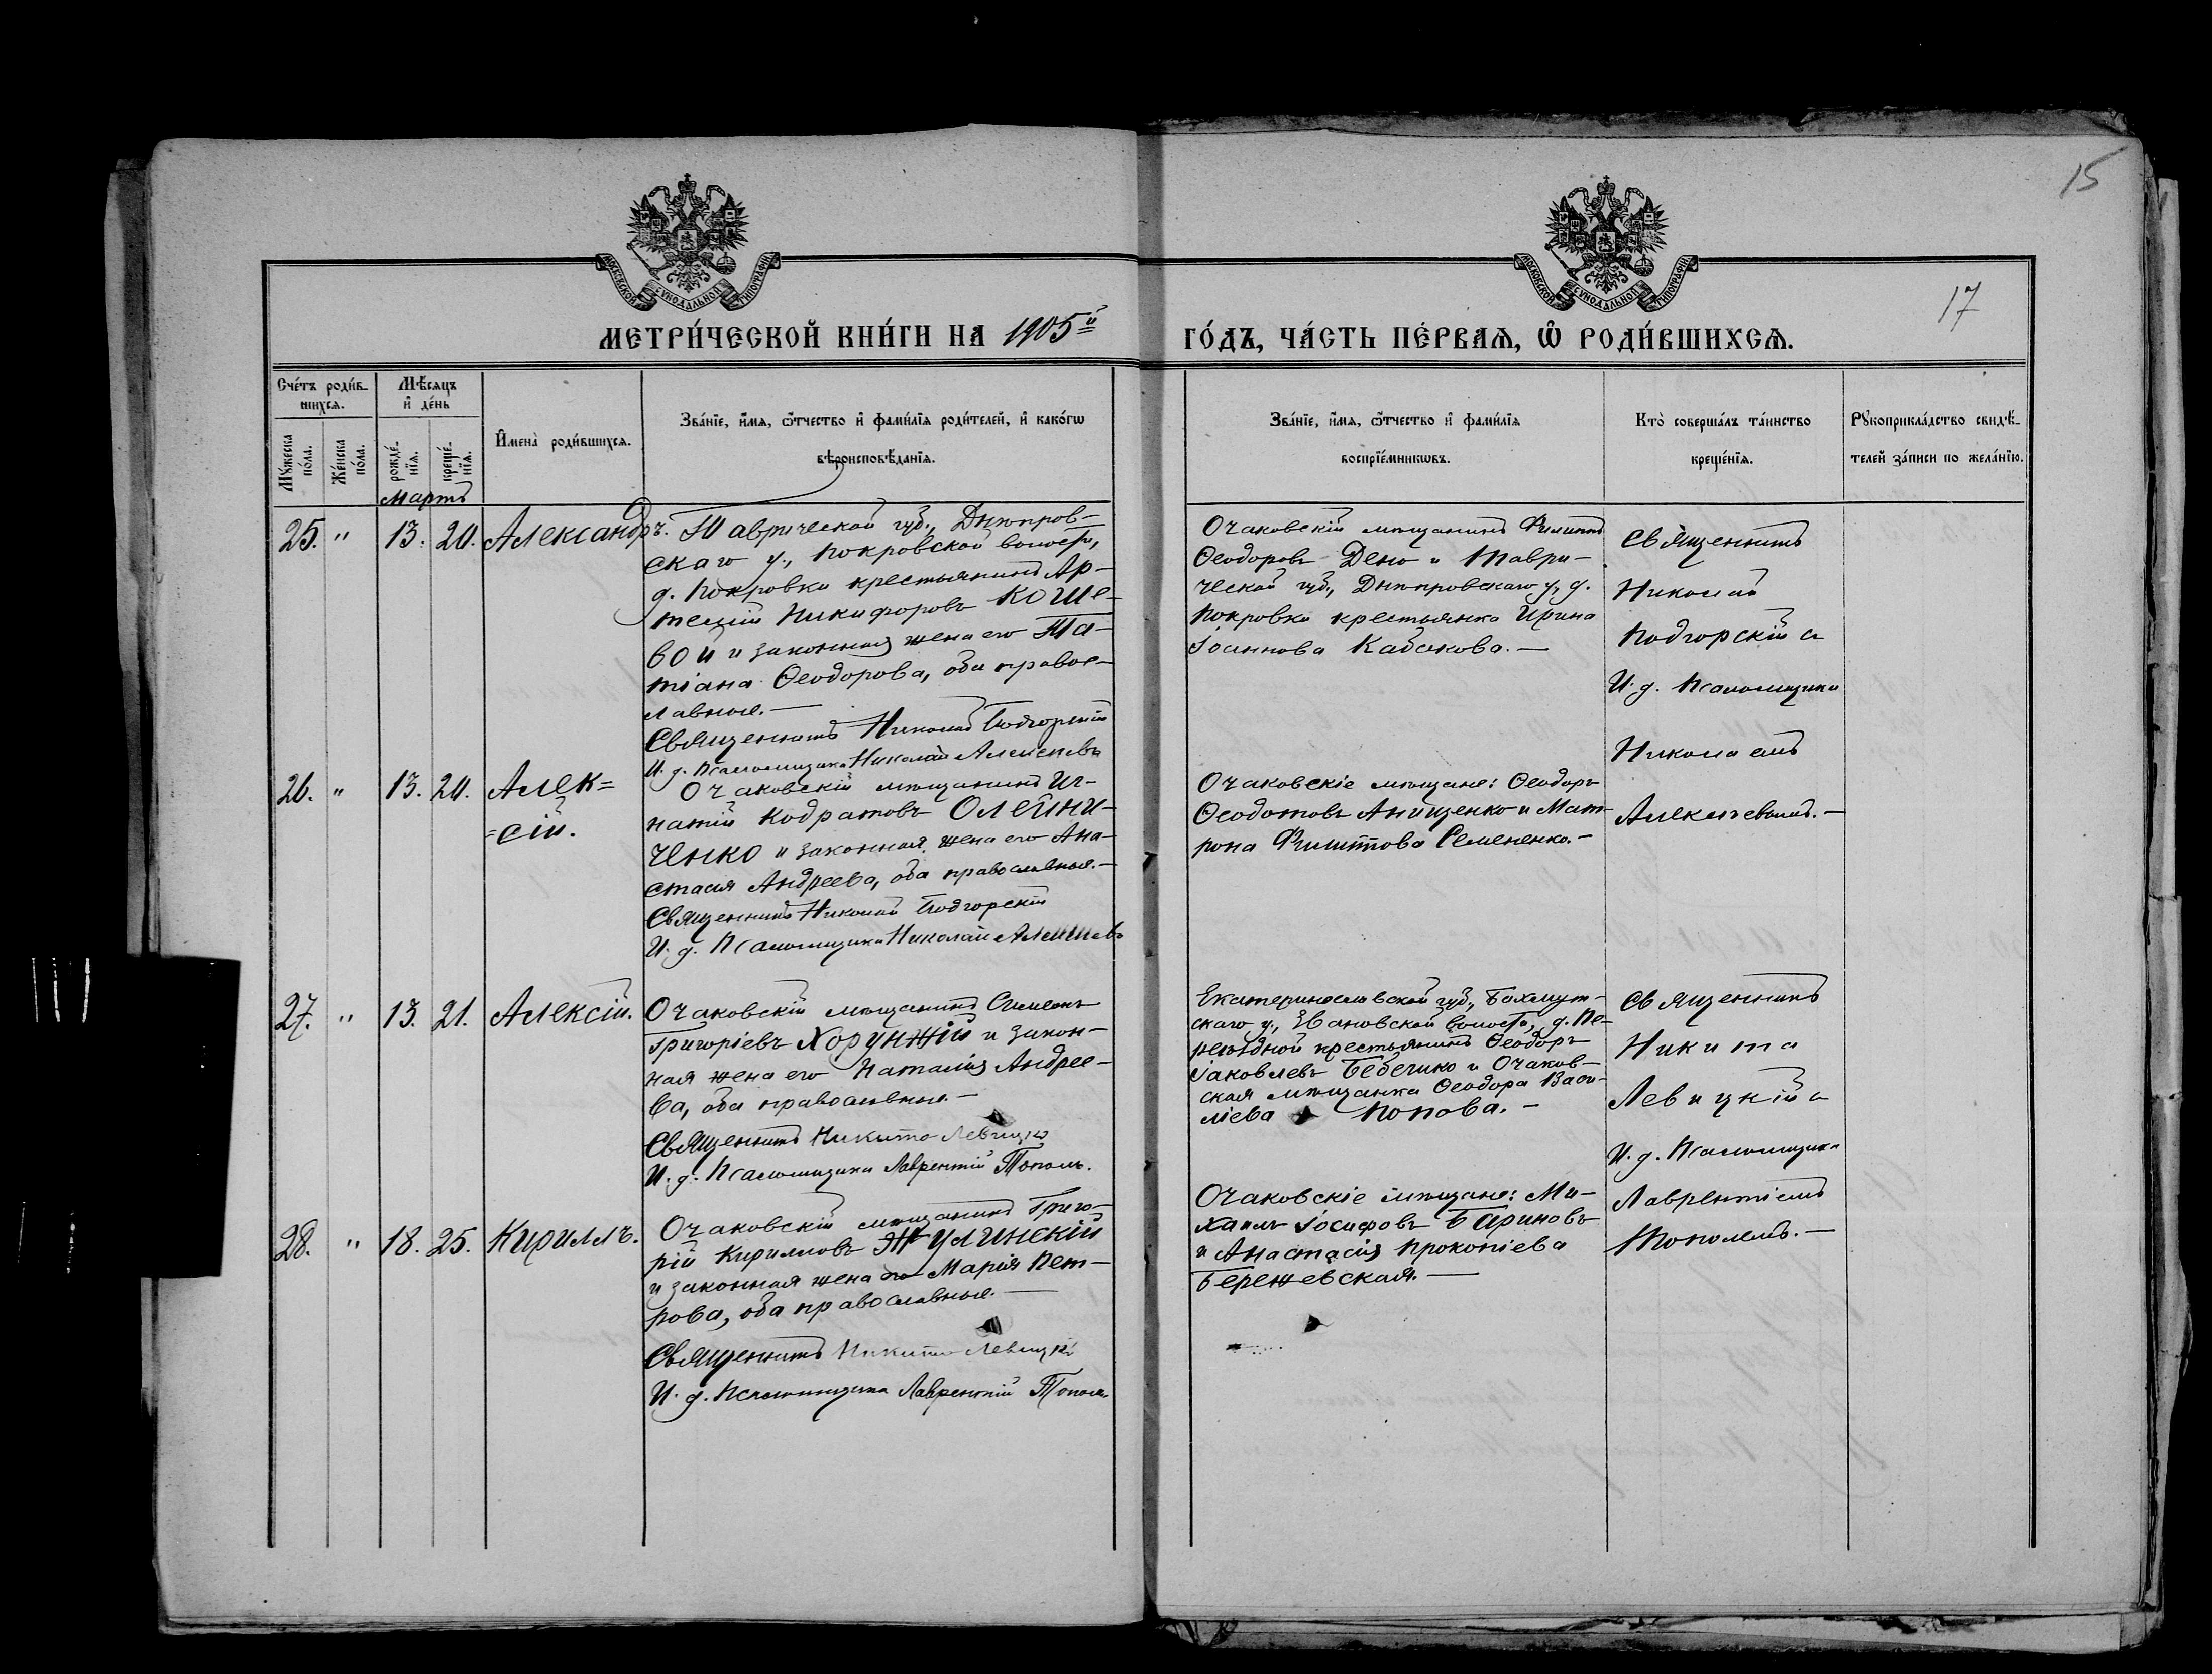 15
17
МОСКОВСКОЙ СѴНОДАЛЬНОЙ ТИПОГРАФІИ
МОСКОВСКОЙ СѴНОДАЛЬНОЙ ТИПОГРАФІИ
МЕТРИ́ЧЕСКОЙ КНИ́ГИ НА 1905й
ГО́ДЪ, ЧА́СТЬ ПЕ́РВАѦ, Ѿ РОДИ́ВШИХСѦ.
Сче́тъ роди́в-
шихсѧ.
Мꙋ́жеска
по́ла.
Же́нска
по́ла.
Мѣ́сѧцъ
и҆ де́нь
рожде́-
нїѧ.
креще́-
нїѧ.
И҆мена̀ роди́вшихсѧ.
Зва́нїе, и҆́мѧ, ѻ҆́тчество и҆ фами́лїѧ роди́телей, и҆ како́гѡ
вѣроисповѣ́данїѧ.
Зва́нїе, и҆́мѧ, ѻ҆́тчество и҆ фами́лїѧ
воспрїе́мникѡвъ.
Кто̀ соверша́лъ та́инство
креще́нїѧ.
Рꙋкоприкла́дство свидѣ́-
телей за́писи по жела́нїю.
Мартъ
25. " 13. 20. Александръ.
Таврической губ., Днѣпров-
скаго у., Покровской волости,
д. Покровки крестьянинъ Ар-
темій Никифоровъ Коше-
вой и законная жена его Та-
тіана Ѳеодорова, оба правос-
лавные.—
Священникъ Николай Подгорскій
И. д. Псаломщика Николай Алексѣевъ
Очаковскій мѣщанинъ Филиппъ
Ѳеодоровъ Дено и Таври-
ческой губ., Днѣпровскаго у, д.
Покровки крестьянка Ирина
Іоаннова Кабакова.—
Священникъ
Николай
Подгорскій съ
И. д. Псаломщика
Николаемъ
Алексѣевымъ.—
26. " 13. 20. Алек=
=сій.
Очаковскій мѣщанинъ Иг-
натій Кодратовъ Олейни-
ченко и законная жена его Ана-
стасія Андреева, оба православные.—
Священникъ Николай Подгорскій
И. д. Псаломщика Николай Алексѣевъ
Очаковскіе мѣщане: Ѳеодоръ
Ѳеодотовъ Анищенко и Мат-
рона Филиппова Семененко.—
27. " 13. 21. Алексій.
Очаковскій мѣщанинъ Симеонъ
Григоріевъ Хорунжій и закон-
ная жена его Наталія Андрее-
ва, оба православные.—
Священникъ Никита Левицкій
И. д. Псаломщика Лаврентій Тополь.
Екатеринославской губ., Бахмут-
скаго у., Звановской волости, д. Пе-
реѣздной крестьянинъ Ѳеодоръ
Іаковлевъ Бебешко и Очаков-
ская мѣщанка Ѳеодора Васи-
ліева Попова.—
Священникъ
Никита
Левицкій съ
И. д. Псаломщика
Лаврентіемъ
Тополемъ.—
28. " 18. 25. Кириллъ.
Очаковскій мѣщанинъ Григо-
рій Кирилловъ Жулинскій
и законная жена его Марія Пет-
рова, оба православные.—
Священникъ Никита Левицкій
И. д. Псаломщика Лаврентій Тополь
Очаковскіе мѣщане: Ми-
хаилъ Іосифовъ Бариновъ
и Анастасія Прокопіева
Бережевская.—